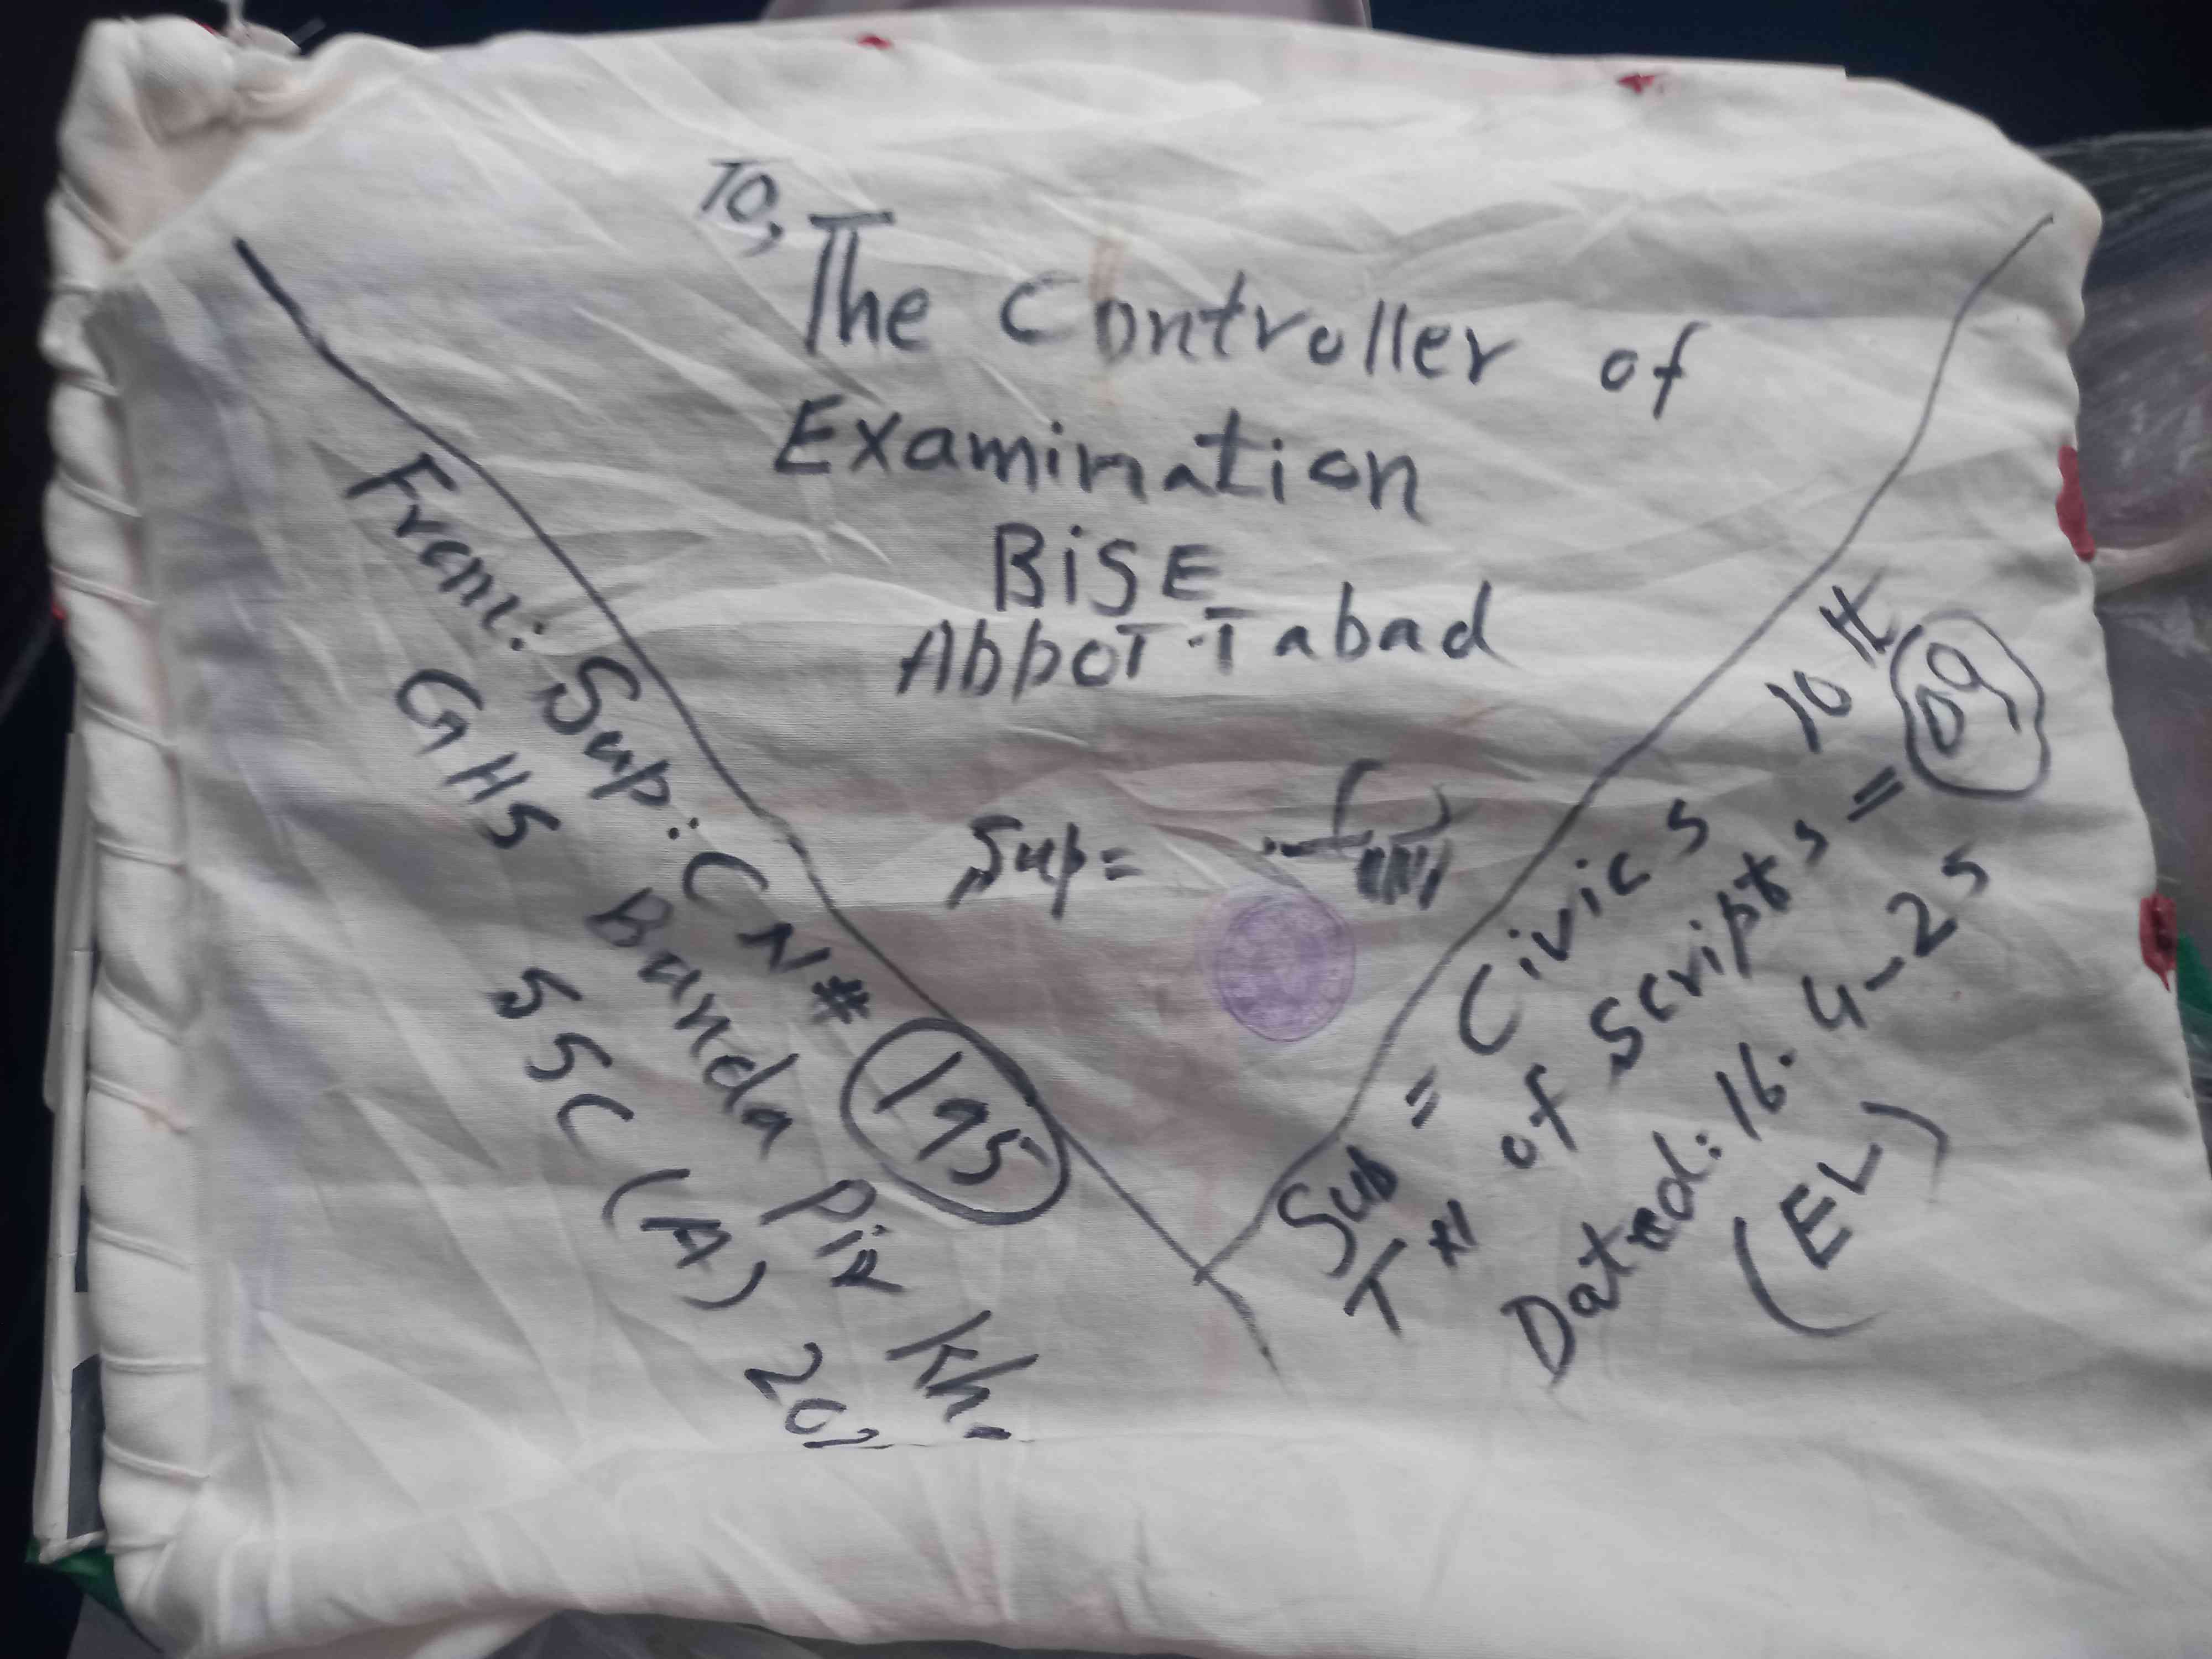 To,
The Controller of
Examination
BiSE
AbboT.Tabad
Sup=
From: Sup: CN# 195
GHS Banda Pir Kh.
SSC (A) 202
Sub = Civics 10th
T# of Scripts = 09
Dated: 16.4-25
(EL)